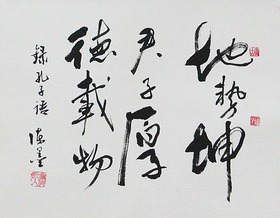 地勢坤
君子厚
德載物
錄孔子語